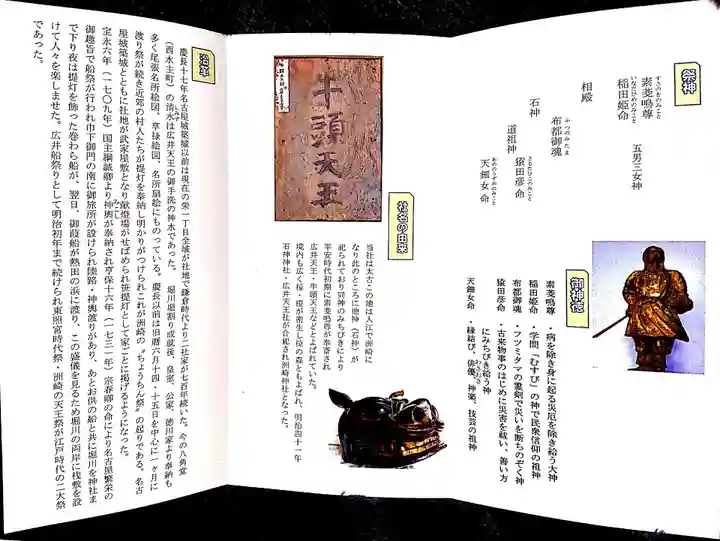 祭神
すさのをのみこと
素戔嗚尊　五男三女神
いなだひめのみこと
稲田姫命
相殿
ふつのみたま
布都御魂
石神　さるたひこのみこと
猿田彦命
道祖神　あめのうずめのみこと
天鈿女命
御神徳
素戔嗚尊・病を除き身に起る災厄を除き給う大神
稲田姫命・学問「むすび」の神で民衆信仰の祖神
布都御魂・フツミタマの霊剣で災いを断ちのぞく神
猿田彦命・古来物事のはじめに災害を祓い、善い方
にみちびき給う神
わざおぎ
天鈿女命・縁結び、俳優、神楽、技芸の祖神
牛頭天王
社名の由来
当社は太古この地は入江で洲崎に
なり此のところに地神（石神）が
祀られており同神のみちびきにより
平安時代初期に素戔嗚尊が奉斎され
広井天王・牛頭天王などとよばれていた。
境内も広く椋・榎が密生し椋の森ともよばれ、明治四十一年
石神神社・広井天王社が合祀され洲崎神社となった。
沿革
慶長十七年名古屋城築城以前は現在の栄一丁目全域が社地で鎌倉時代より二社家が七百年続いた。今の八角堂
（西水主町）の清水は広井天王の御手洗の神水であった。　堀川堀割り成就後、皇室、公家、徳川家より奉納も
多く尾張名所絵図、享禄絵図、名所屏絵にものっている。慶長以前は旧暦六月十四・十五日を中心に一ヶ月に
渡り祭が続き近郊の村人たちが提灯を奉納し明かりがつけられこれが洲崎の〝ちょうちん祭〟の起りである。名古
屋城築城とともに社地が武家屋敷となり献燈場がせばめられ笹提灯として家ごとに掲げるようになった。
みこし
宝永六年（一七〇九年）国主綱誠卿より神輿が奉納され享保十六年（一七三一年）宗春卿の命により名古屋繁栄の
御趣旨で船祭が行われ巾下御門の南に御旅所が設けられ陸路・神輿渡りがあり、あとお供の船と共に堀川を神社ま
で下り夜は提灯を飾った巻わら船が、翌日、御葭船が熱田の浜に渡り、この盛儀を見るため堀川の両岸に桟敷を設
けて人々を楽しませた。広井船祭りとして明治初年まで続けられ東照宮時代祭・洲崎の天王祭が江戸時代の二大祭
であった。